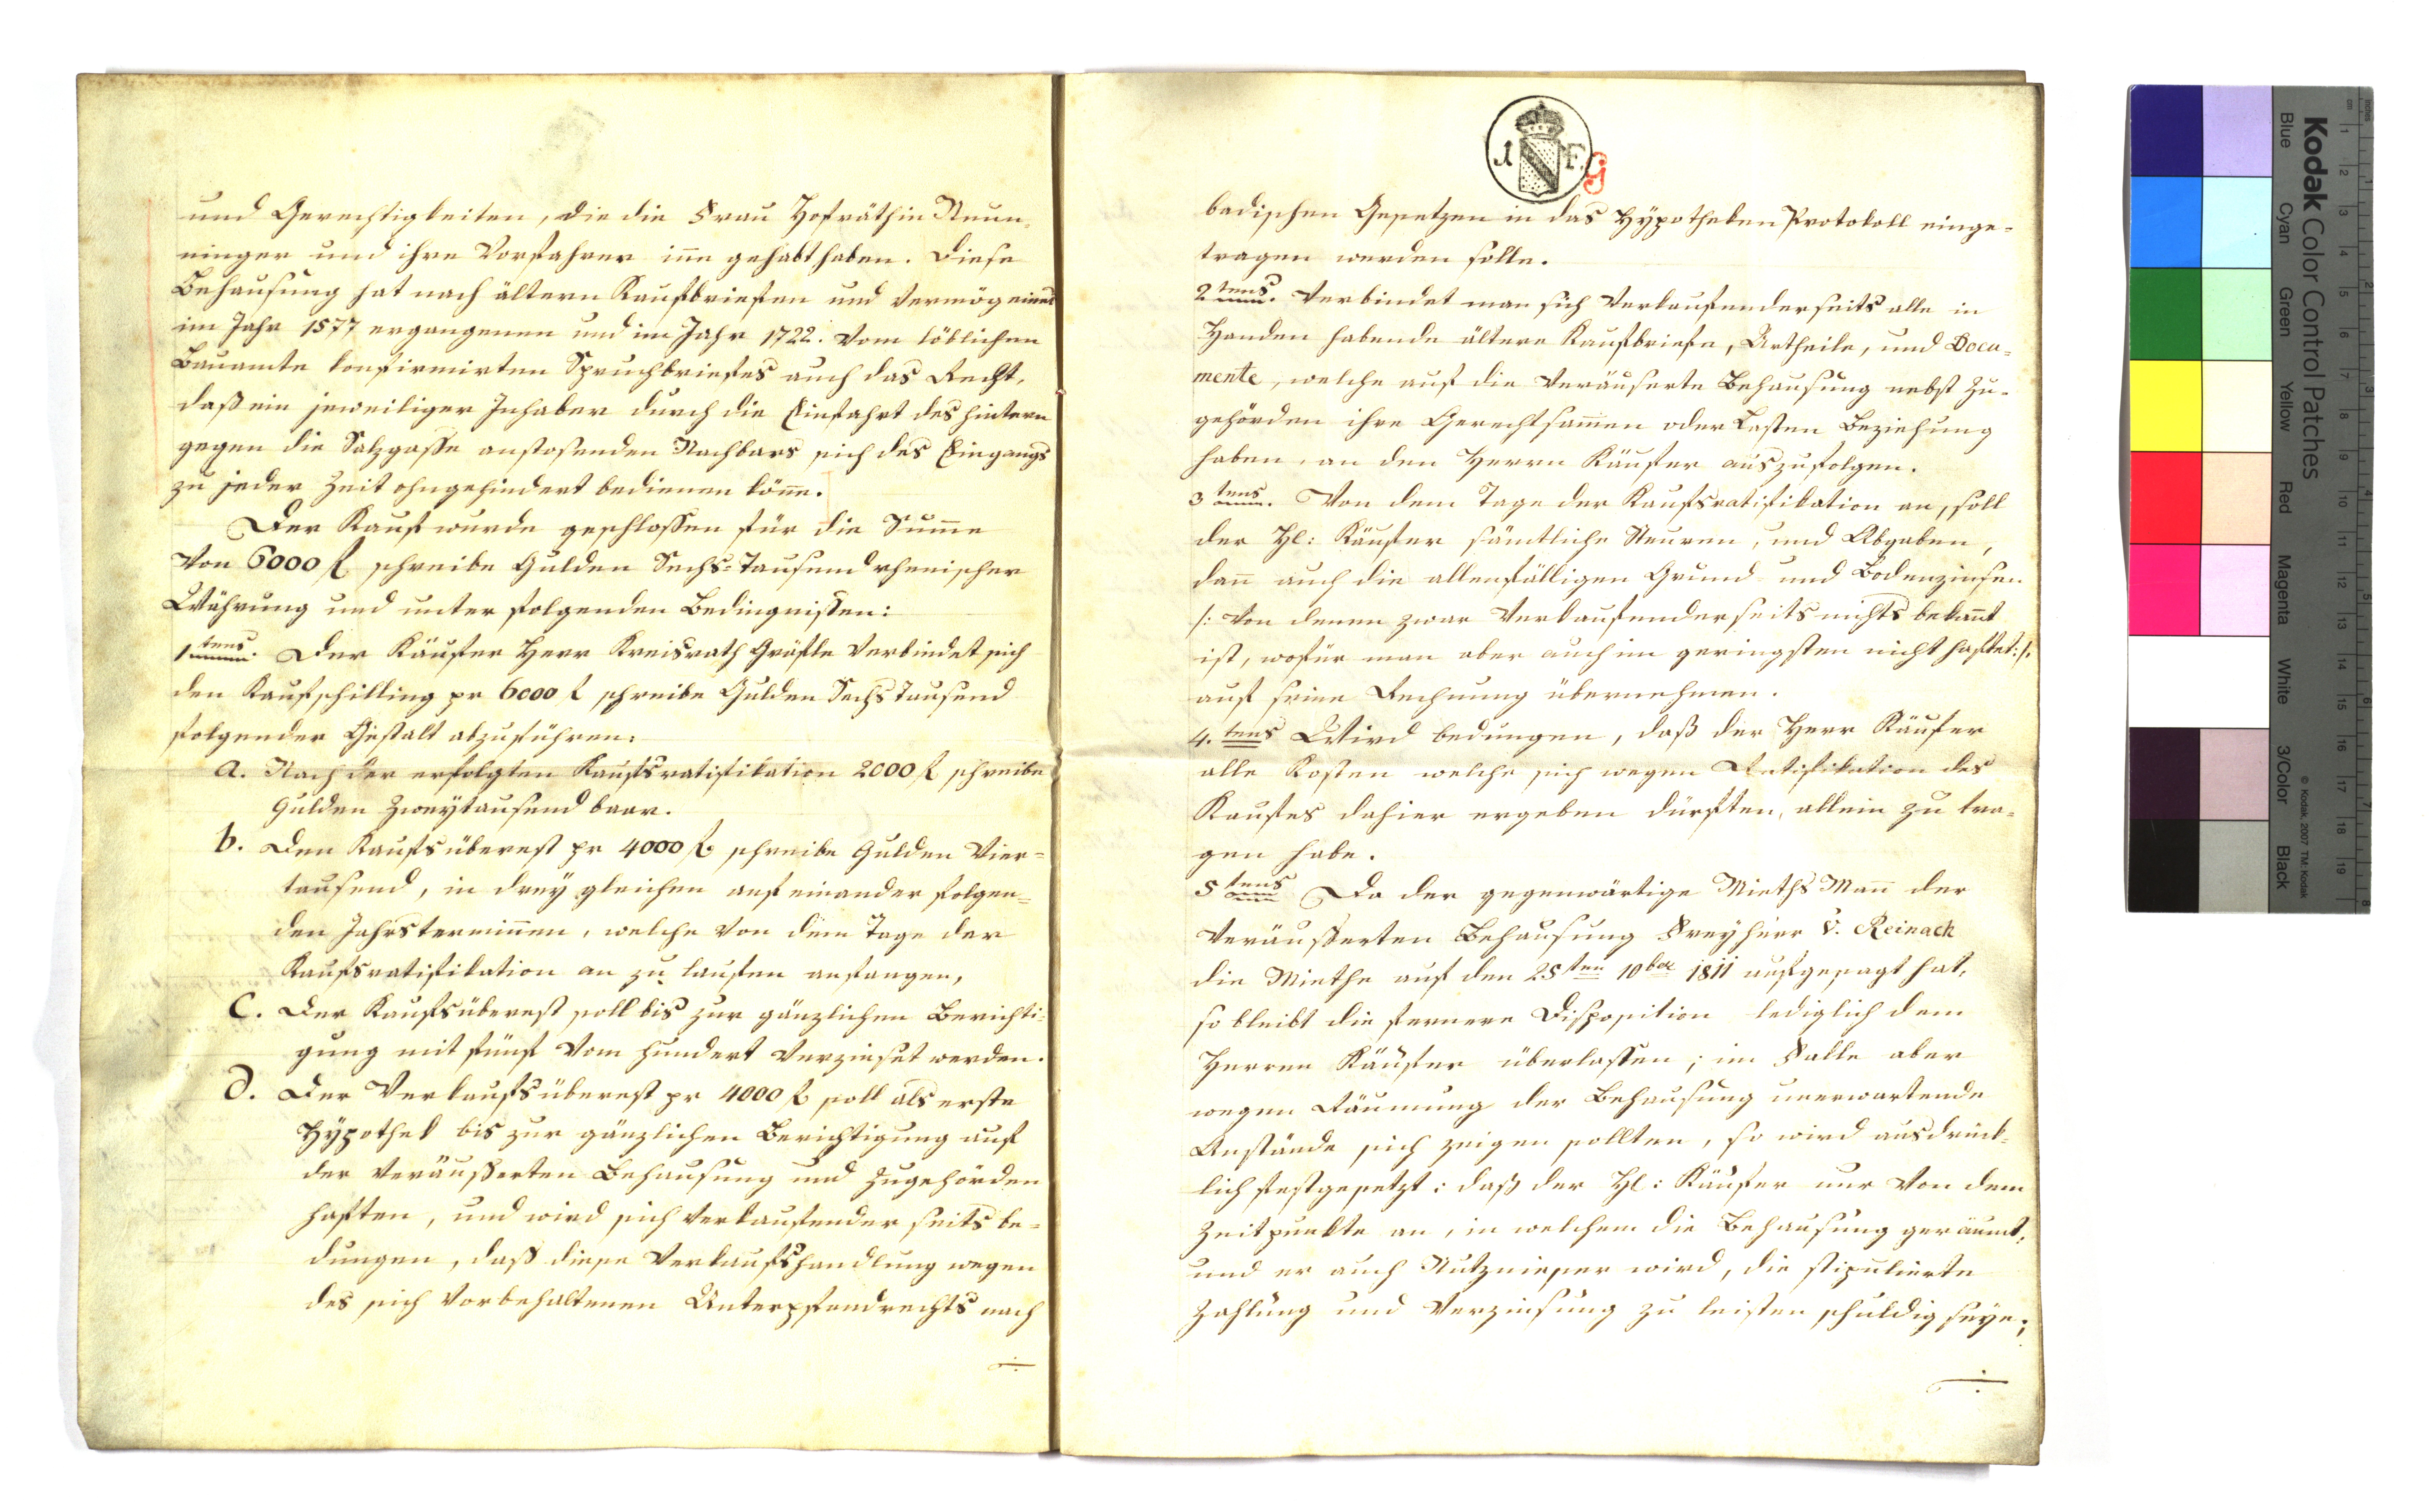 und Gerechtigkeiten, die die Frau Hofräthin Neun-
ninger und ihre Vorfahrer iñe gehabt haben. Diese
Behausung hat nach ältern Kaufbriefen und vermög eines
im Jahr 1577 ergangenen und im Jahr 1722. vom löblichen
Bauamte konfirmirten Spruchbriefes auch das Recht,
daß ein jeweiliger Inhaber durch die Einfahrt des hintern
gegen die Salzgasse anstosenden Nachbars sich des Eingangs
zu jeder Zeit ohngehindert bedienen köñe.
Der Kauf wurde geschlossen für die Sum̃e
von 6000 f schreibe Gulden Sechs-Tausend rhenischer
Währung und unter folgenden Bedingnissen:
1tens. Der Käufer Herr Kreisrath Gräfle verbindet sich
den Kaufschilling pr 6000 f schreibe Gulden Sechs Tausend
folgender Gestalt abzuführen:
a. Nach der erfolgten Kaufsratifikation 2000 f schreibe
Gulden Zweytausend baar.
b. Den Kaufsüberest pr 4000 f schreibe Gulden Vier-
tausend, in drey gleichen auf einander folgen-
den Jahrsterminen, welche von dem Tage der
Kaufsratifikation an zu laufen anfangen,
C. Der Kaufsüberest soll bis zur gänzlichen Berichti-
gung mit fünf vom hundert verzinset werden.
d. Der Verkaufsüberest pr 4000 f soll als erste
Hÿpothek bis zur gänzlichen Berichtigung auf
der veräußerten Behausung und Zugehörden
haften, und wird sich verkaufender seits be-
dungen, daß diese Verkaufshandlung wegen
des sich vorbehaltenen Unterpfandrechts nach
1 F. G
badischen Gesetzen in das Hÿpotheken Protokoll einge-
tragen werden solle.
2tens. Verbindet man sich verkaufenderseits alle in
Handen habende ältere Kaufbriefe, Urtheile, und Docu-
mente, welche auf die veräuserte Behausung nebst Zu-
gehörden ihre Gerechtsam̃en oder Lasten Beziehung
haben, an den Herrn Käufer auszufolgen.
3tens. Von dem Tage der Kaufsratifikation an, soll
der H: Käufer sämtliche Steuren, und Abgaben,
dañ auch die allenfälligen Grund und Bodenzinsen
/: von denen zwar verkaufenderseits nichts bekañt
ist, wofür man aber auch im geringsten nicht haftet:/.
auf seine Rechnung übernehmen.
4.tens Wird bedungen, daß der Herr Käufer
alle Kosten welche sich wegen Ratifikation des
Kaufes dahier ergeben dürften, allein zu tra-
gen habe.
5tens Da der gegenwärtige Mieths Mañ der
veräusserten Behausung Freyherr v. Reinach
die Miethe auf den 25ten 10ber 1811 aufgesagt hat,
so bleibt die fernere Disposition lediglich dem
Herren Käufer überlassen; im Falle aber
wegen Räumung der Behausung unerwartende
Anstände sich zeigen sollten, so wird ausdrück-
lich festgesetzt: daß der H: Käufer nur von dem
Zeitpunkte an, in welchem die Behausung geräumt,
und er auch Nutznieser wird, die stipulierte
Zahlung und Verzinsung zu leisten schuldig seye;
Kodak Color Control Patches
Blue Cyan Green Yellow Red Magenta White 3/Color Black
© Kodak, 2007 TM: Kodak
cm 1 2 3 4 5 6 7 8 9 10 11 12 13 14 15 16 17 18 19
inches 1 2 3 4 5 6 7 8